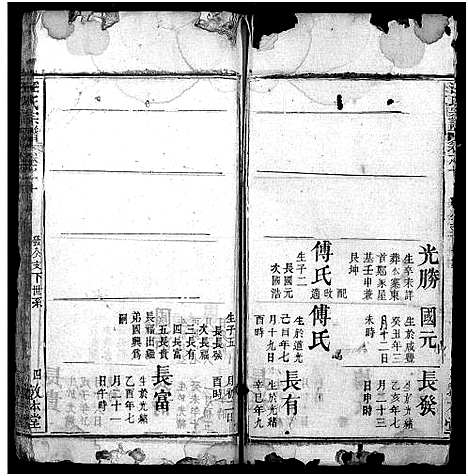 光勝
生卒未詳
艮坤
配
傅氏
改適
生子二
長國元
次國浩
國元
生於咸豐
癸丑年三
月十一日
未時
傅氏
生於道光
己酉年七
月十九日
酉時
長發
生於光緒
乙亥年七
月二十三
日申時
長有
生於光緒
辛巳年九
月初二日
酉時
生子五
長長發
次長福
三長有
四長富
五長貴
長福出繼
弟國興爲
嗣
長富
生於光緒
乙酉年七
月二十一
日午時
宗譜
公支下世系
敦本堂